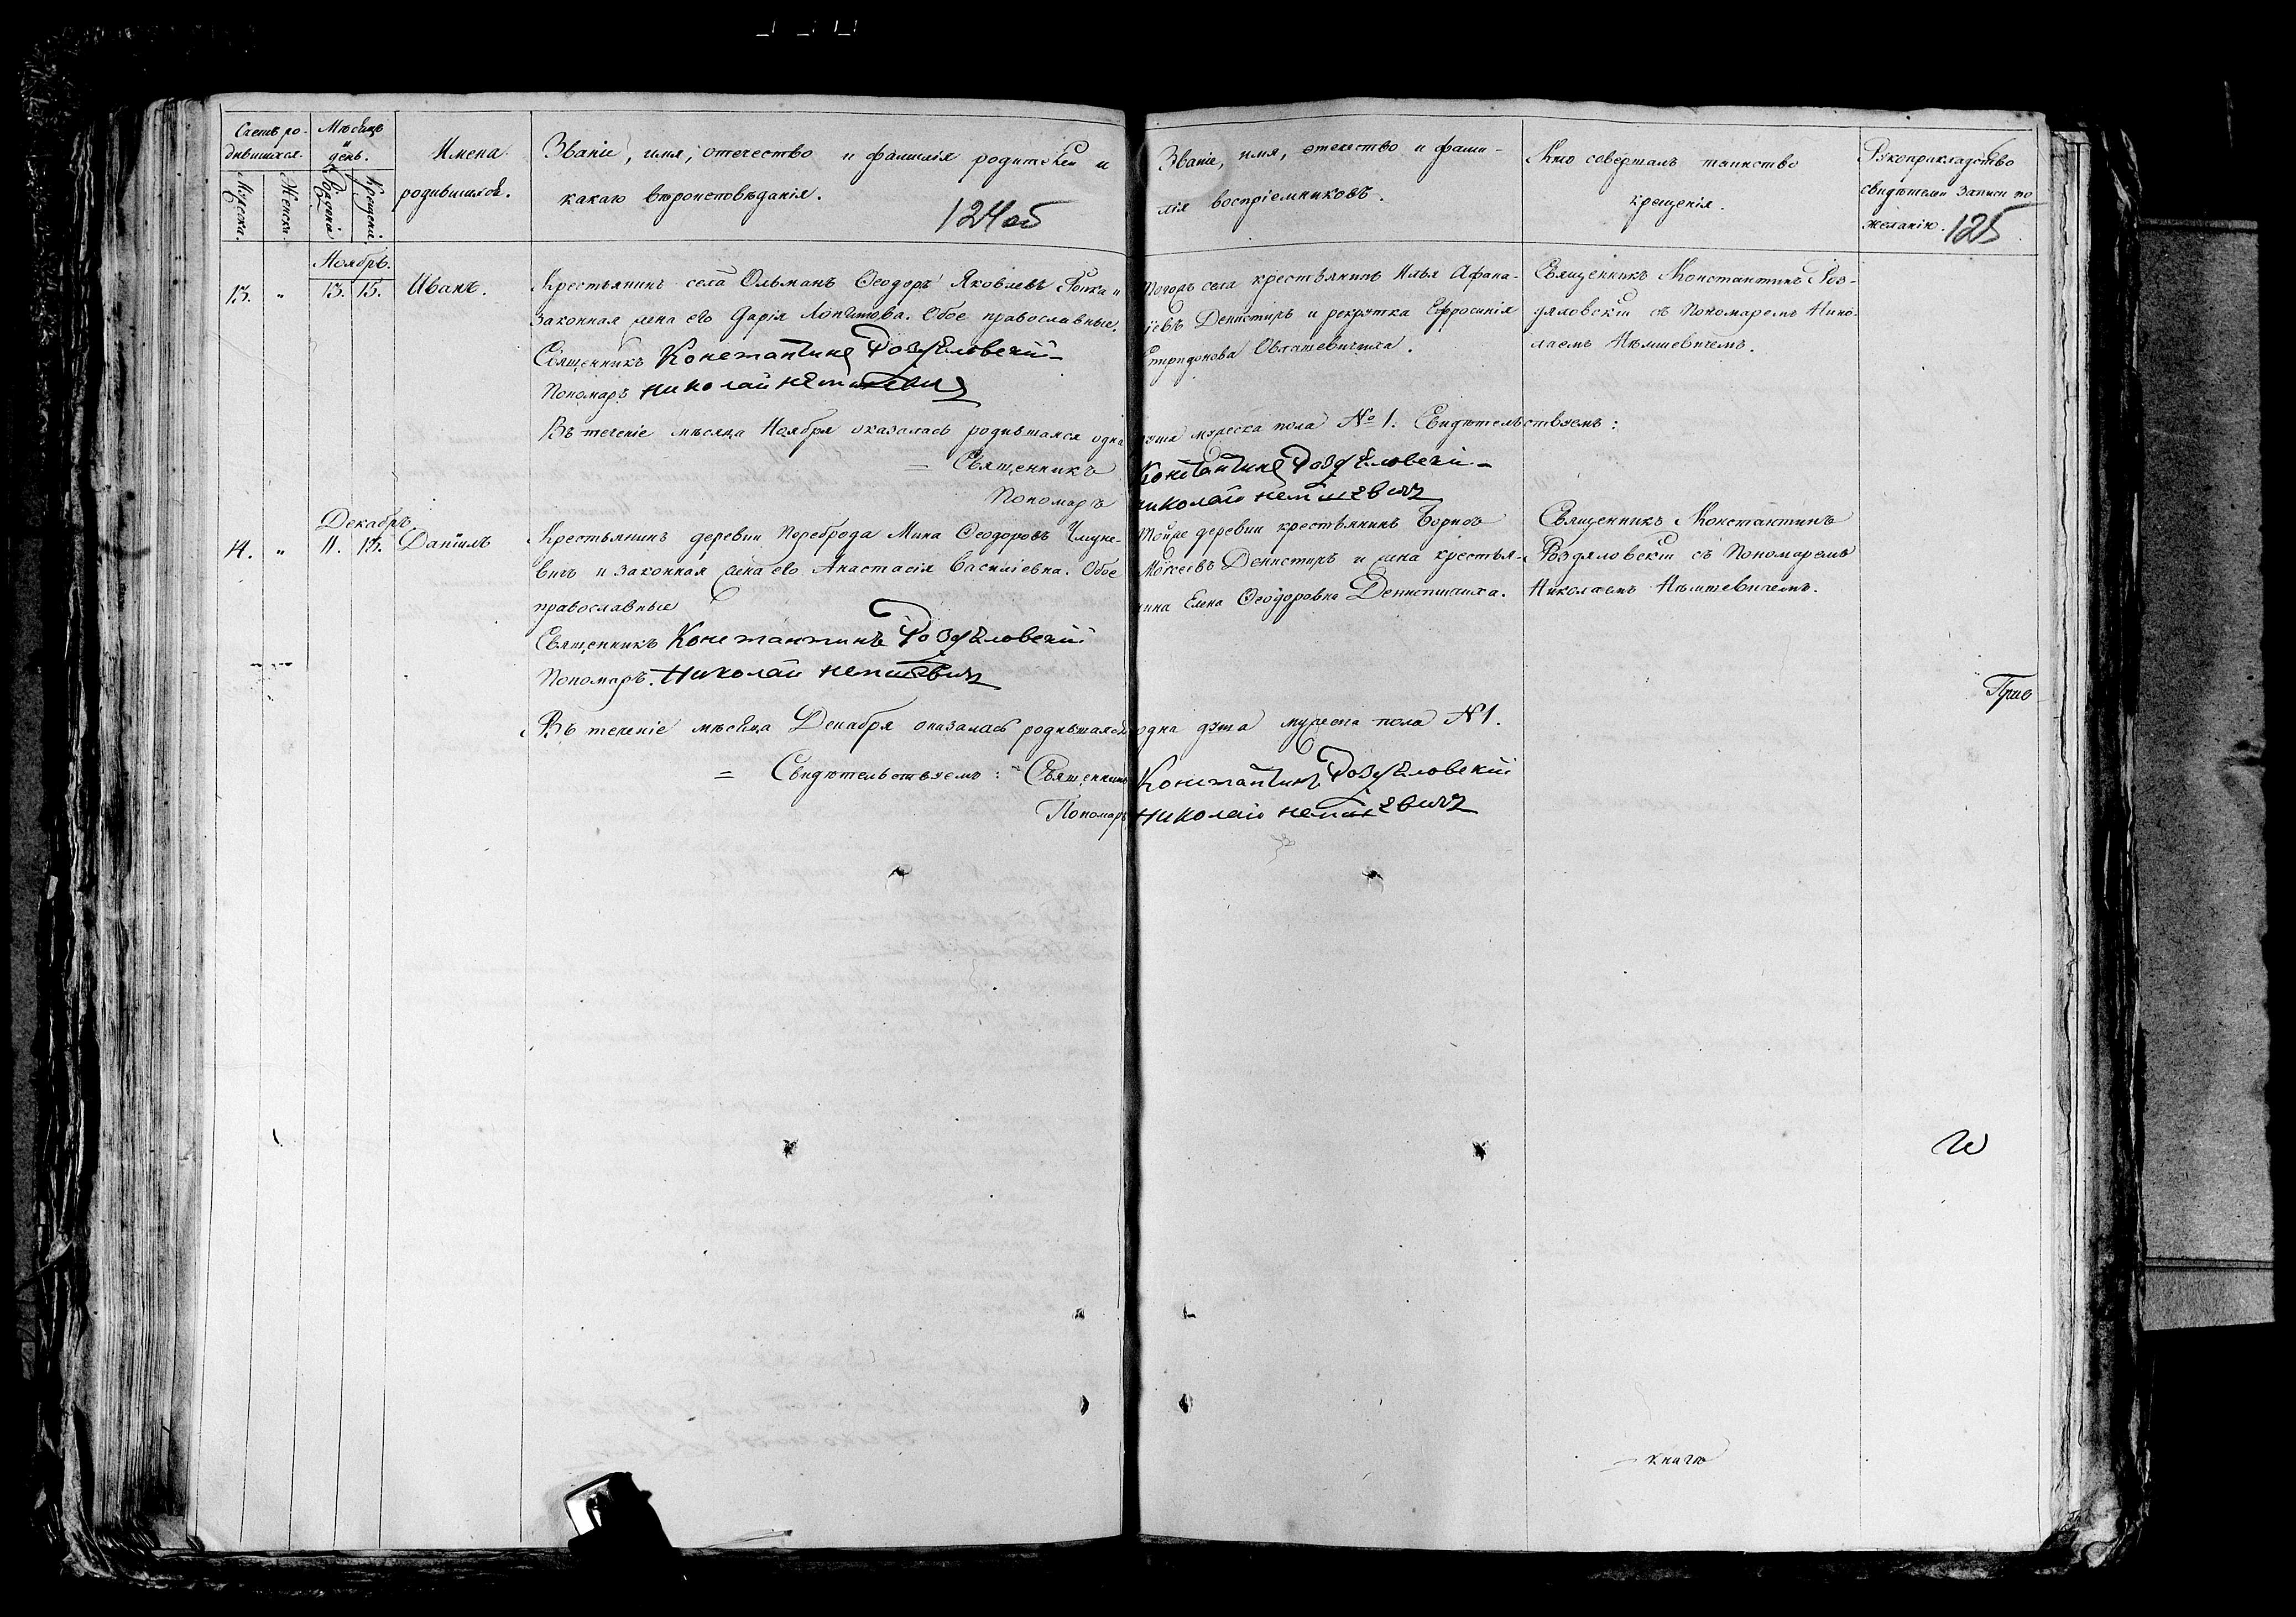 Счетъ ро-
дившихся.
Мужеска.
Женска.
Мѣсяцъ
и
день.
Рожденія
Крещенія.
Имена
родившихся.
Званіе, имя, отечество и фамилія родителей и
какаго вѣроисповѣданія.
124об
Званіе, имя, отечество и фами-
лія воспріемниковъ.
Кто совершалъ таинство
крещенія.
Рукоприкладство
свидѣтелей записи по
желанію.
125
Ноябрь.
13. " 13. 15. Иванъ.
Крестьянинъ села Ольманъ Ѳеодоръ Яковлевъ и
законная жена его Дарія. Обое православные.
Священникъ Константинъ Роздѣловскій
Пономарь Николай Немшевичъ
Тогожъ села крестьянинъ Илья Афана-
іевъ Денисчиръ и рекрутка Ефросинія
Спиридонова
Священникъ Константинъ Роз-
дяловскій съ Пономаремъ Нико-
лаемъ Нѣмшевичемъ.
Въ теченіе мѣсяца Ноября оказалась родившаяся одна душа мужеска пола № 1. Свидѣтельствуемъ:
= Священникъ Константинъ Роздѣловскій
Пономарь Николай Немшевичъ
Декабрь
14. " 11. 13. Даніилъ
Крестьянинъ деревни Переброда Мина Ѳеодоровъ
вичъ и законная жена его Анастасія Василіевна. Обое
православные
Священникъ Константинъ Роздѣловскій
Пономарь. Николай Немшевичъ
Тойже деревни крестьянинъ Борисъ
Моисеевъ Денисчиръ и жена крестья-
нина Елена Ѳеодоровна
Священникъ Константинъ
Роздяловскій съ Пономаремъ
Николаемъ Нѣмшевичемъ.
Въ теченіе мѣсяца Декабря оказалась родившаяся одна душа мужеска пола № 1.
= Свидѣтельствуемъ: Священникъ Константинъ Роздѣловскій
Пономарь Николай Немшевичъ
книгѣ